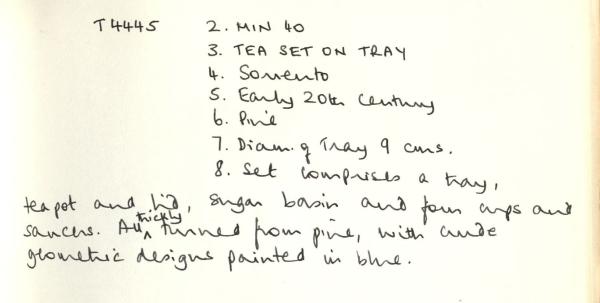 T4445 2. MIN 40
3. TEA SET ON TRAY
4. Sorrento
5. Early 20th Century
6. Pine
7. Diam. of Tray 9 cms.
8. Set comprises a tray,
teapot and lid, sugar basin and four cups and
saucers. All thickly turned from pine, with crude
geometric designs painted in blue.